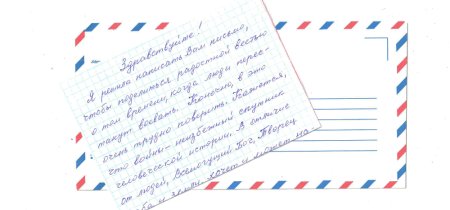 Здравствуйте!
Я решила написать Вам письмо,
чтобы поделиться радостной вестью
о том времени, когда люди перес-
танут воевать. Конечно, в это
очень трудно поверить. Кажется,
что войны – неизбежный спутник
человеческой истории. В отличие
от людей, Всемогущий Бог, Творец
неба и земли хочет и может на